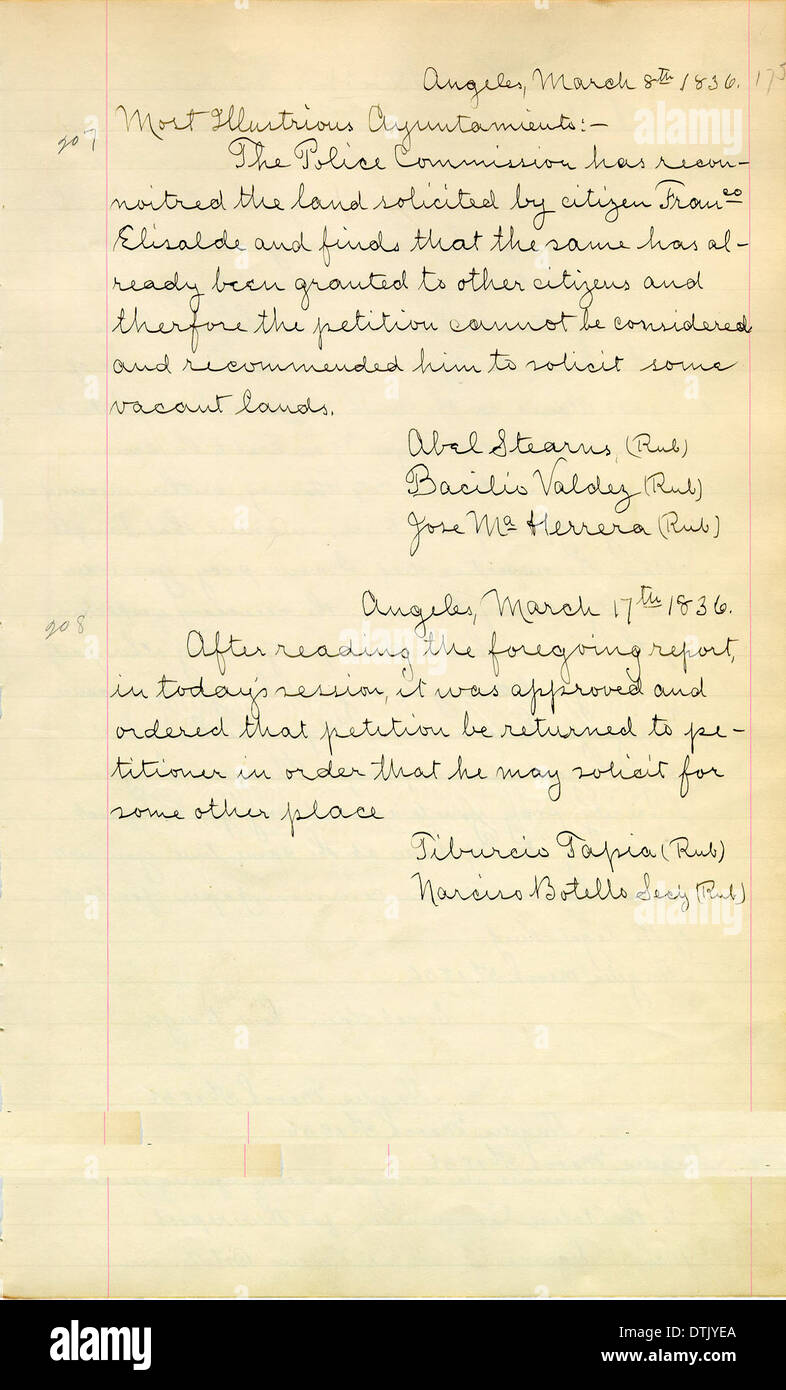 Angeles, March 8th 1836. 175
207 Most Illustrious Ayuntamiento:—
The Police Commission has recon-
noitred the land solicited by citizen Franco
Elisalde and finds that the same has al-
ready been granted to other citizens and
therfore the petition cannot be considered
and recommended him to solicit some
vacant lands.
Abel Stearns, (Rub)
Bacilio Valdez (Rub)
Jose Ma Herrera (Rub)
Angeles, March 17th 1836.
208
After reading the foregoing report,
in today's session, it was approved and
ordered that petition be returned to pe-
titioner in order that he may solicit for
some other place
Tiburcio Tapia (Rub)
Narciso Botello Secy (Rub)
alamy
Image ID: DTJYEA
www.alamy.com